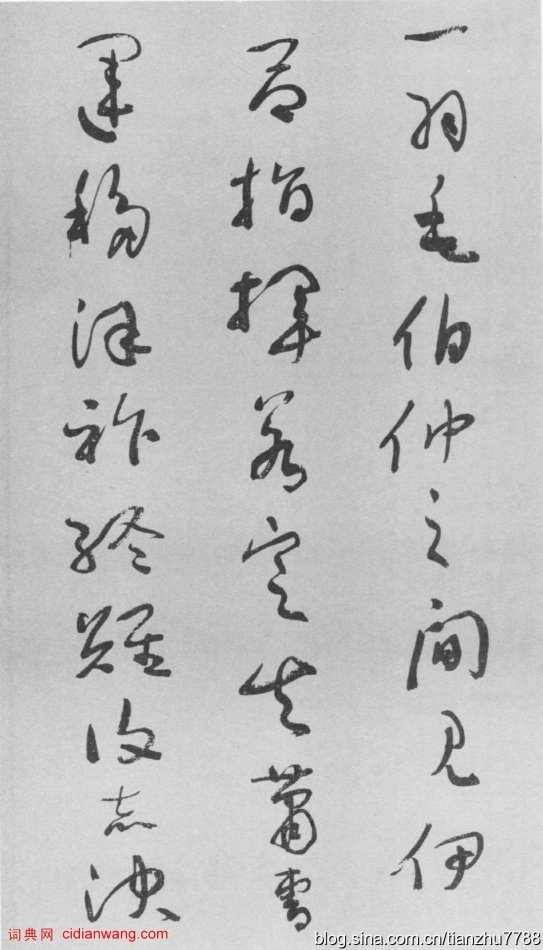 一羽毛伯仲之間見伊
呂指揮若定失蕭曹
運移漢祚終難復志決
词典网 cidianwang.com
blog.sina.com.cn/tianzhu7788